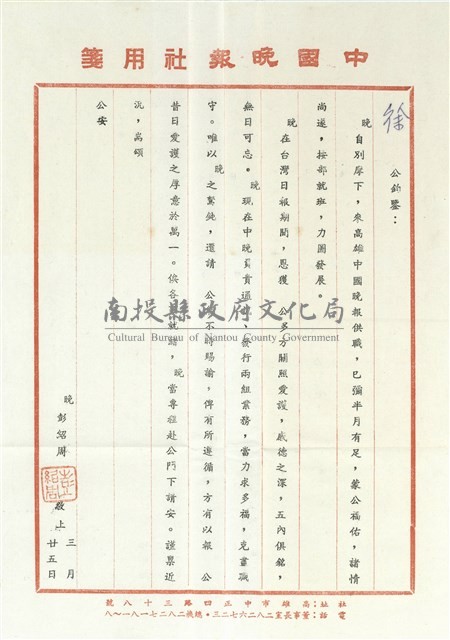 中國晚報社用箋
徐
公鈞鑒：
晚自別麾下，來高雄中國晚報供職，已彌半月有足，蒙公福佑，諸情
尚遂，按部就班，力圖發展。
晚在台灣日報期間，恩獲 公多方關照愛護，感德之深，五內俱銘，
無日可忘。晚現在中晚負責 、發行兩組業務，當力求多福，克盡職
守。唯以晚之駑鈍，還請 公 不時賜諭，俾有所遵循，方有以報 公
昔日愛護之厚意於萬一。俟各 就緒，晚當專程赴公門下請安。謹稟近
況，耑頌
公安
晚 彭紹周 敬上
三月廿五日
社址：高雄市中正四路三十八號
電話：董事長室二八二六七二三‧總機二八二七一八一～八
南投縣政府文化局
Cultural Bureau of Nantou County Government